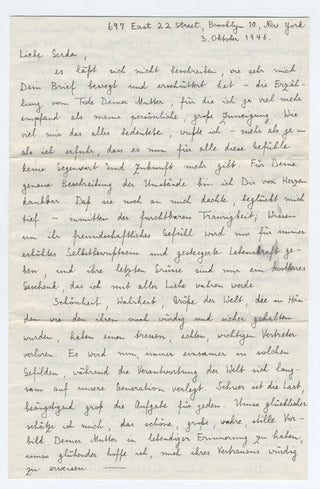 697 East 22 Street, Brooklyn 10, New York
3. Oktober 1946.
Liebe Gerda,
es läßt sich nicht beschreiben, wie sehr mich
Dein Brief bewegt und erschüttert hat – die Erzäh-
lung vom Tode Deiner Mutter, für die ich ja viel mehr
empfand als meine persönliche, große Zuneigung. Wie
viel mir das alles bedeutete, wußte ich – mehr als je –
als ich erfuhr, dass es nun für alle diese Gefühle
keine Gegenwart und Zukunft mehr gibt. Für Deine
genaue Beschreibung der Umstände bin ich Dir von Herzen
dankbar. Daß sie noch an mich dachte, beglückt mich
tief – inmitten der furchtbaren Traurigkeit; Wissen
um ihr freundschaftliches Gefühl wird mir für immer
erhöhtes Selbstbewußtsein und gesteigerte Lebenskraft ge-
ben, und ihre letzten Grüsse sind mir ein
Geschenk, das ich mit aller Liebe wahren werde.
Schönheit, Wahrheit, Größe der Welt, die in Hän-
den wie den ihren noch würdig und sicher gehalten
wurden, haben einen treuen, echten, wichtigen Vertreter
verloren. Es wird nun immer einsamer in solchen
Gefilden, während die Verantwortung der Welt sich lang-
sam auf unsere Generation verlegt. Schwer ist die Last,
beängstigend groß die Aufgabe für jeden. Umso glücklicher
schätze ich mich, das schöne, große, wahre, stille Vor-
bild Deiner Mutter in lebendiger Erinnerung zu haben,
umso glühender hoffe ich, mich ihres Vertrauens würdig
zu erweisen.